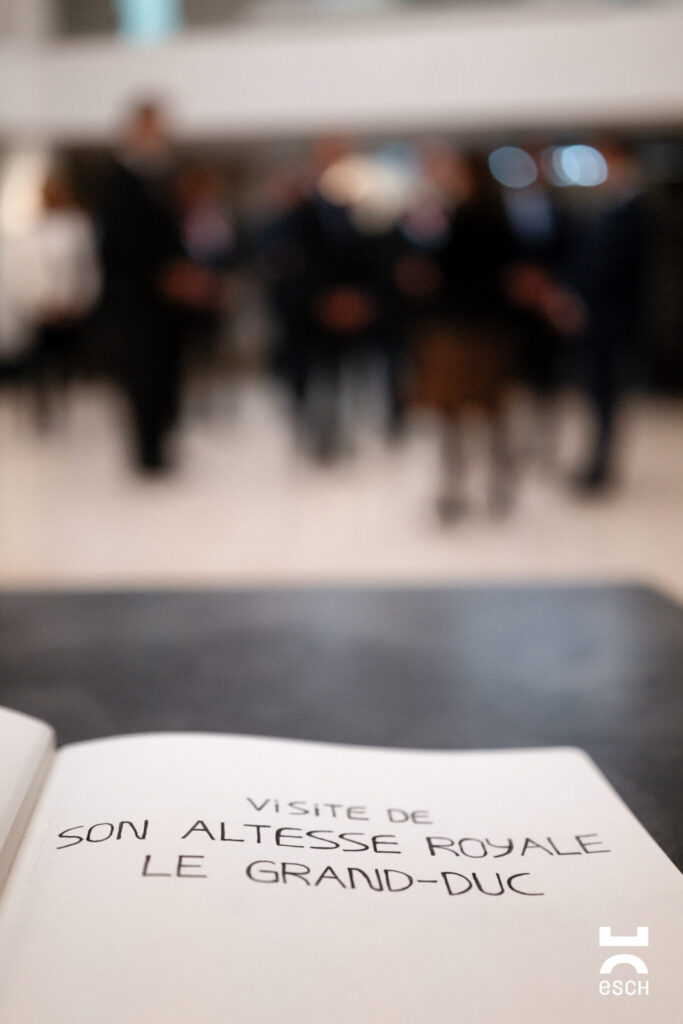 ViSiTE DE
SON ALTESSE ROYALE
LE GRAND-DUC
esch